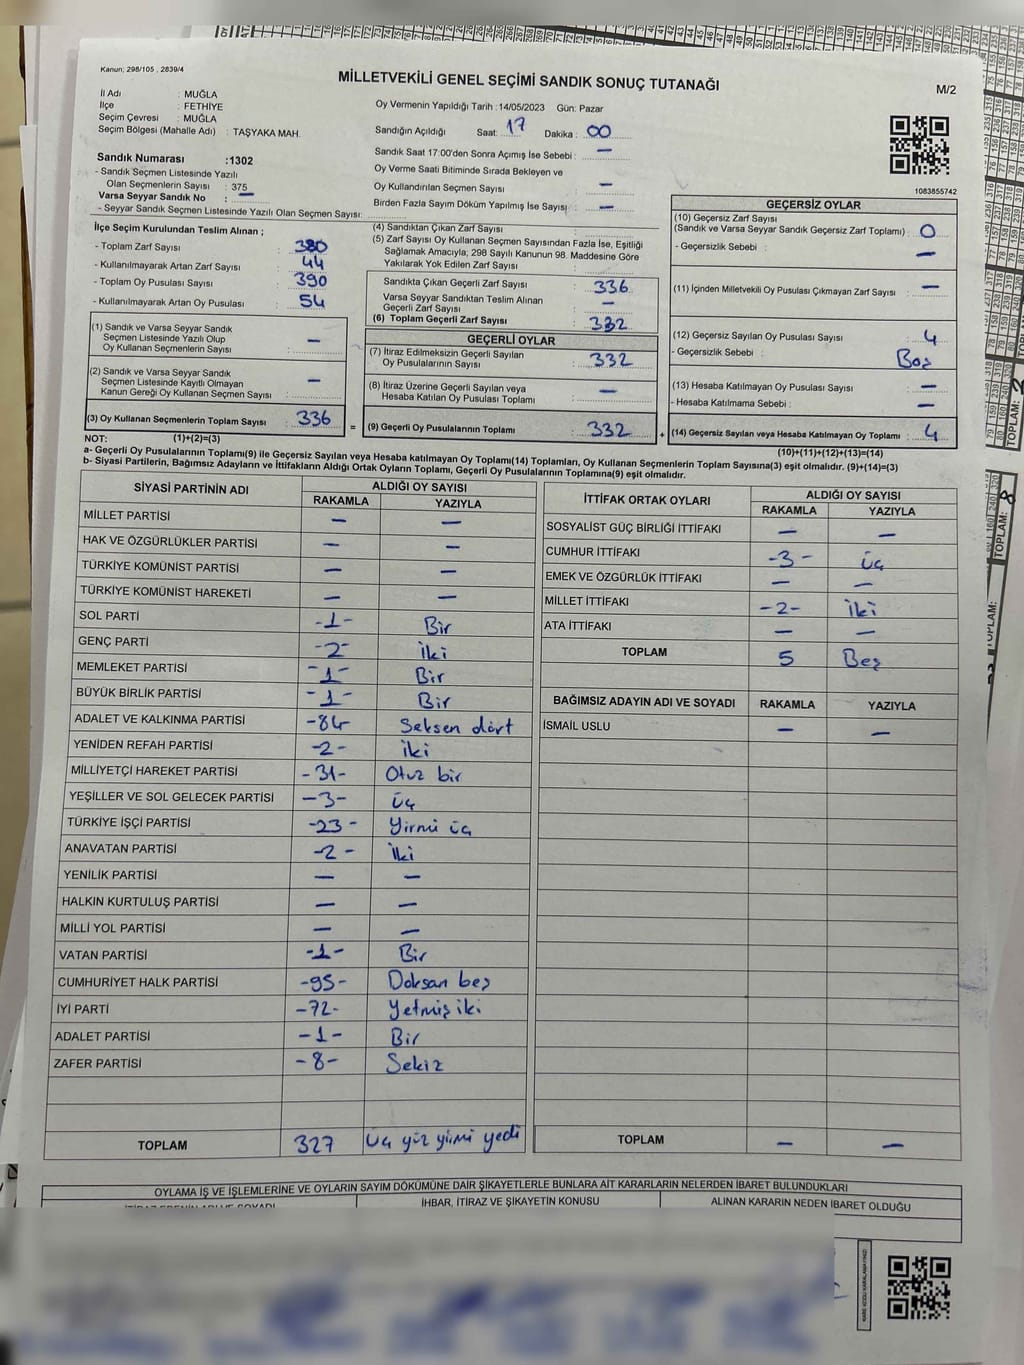 Kanun; 298/105 , 2839/4
MİLLETVEKİLİ GENEL SEÇİMİ SANDIK SONUÇ TUTANAĞI
M/2
İl Adı : MUĞLA
İlçe : FETHİYE
Seçim Çevresi : MUĞLA
Seçim Bölgesi (Mahalle Adı) : TAŞYAKA MAH.
Oy Vermenin Yapıldığı Tarih :14/05/2023 Gün: Pazar
Sandığın Açıldığı Saat: 17 Dakika : 00
Sandık Saat 17:00'den Sonra Açımış İse Sebebi : —
Oy Verme Saati Bitiminde Sırada Bekleyen ve
Oy Kullandırılan Seçmen Sayısı —
Birden Fazla Sayım Döküm Yapılmış İse Sayısı : —
1083855742
Sandık Numarası :1302
- Sandık Seçmen Listesinde Yazılı
Olan Seçmenlerin Sayısı : 375
Varsa Seyyar Sandık No : —
- Seyyar Sandık Seçmen Listesinde Yazılı Olan Seçmen Sayısı:
İlçe Seçim Kurulundan Teslim Alınan ;
- Toplam Zarf Sayısı : 380
- Kullanılmayarak Artan Zarf Sayısı : 44
- Toplam Oy Pusulası Sayısı : 390
- Kullanılmayarak Artan Oy Pusulası : 54
(1) Sandık ve Varsa Seyyar Sandık
Seçmen Listesinde Yazılı Olup
Oy Kullanan Seçmenlerin Sayısı : —
(2) Sandık ve Varsa Seyyar Sandık
Seçmen Listesinde Kayıtlı Olmayan
Kanun Gereği Oy Kullanan Seçmen Sayısı : —
(3) Oy Kullanan Seçmenlerin Toplam Sayısı : 336
(4) Sandıktan Çıkan Zarf Sayısı :
(5) Zarf Sayısı Oy Kullanan Seçmen Sayısından Fazla İse, Eşitliği
Sağlamak Amacıyla, 298 Sayılı Kanunun 98. Maddesine Göre
Yakılarak Yok Edilen Zarf Sayısı :
Sandıkta Çıkan Geçerli Zarf Sayısı : 336
Varsa Seyyar Sandıktan Teslim Alınan
Geçerli Zarf Sayısı : —
(6) Toplam Geçerli Zarf Sayısı : 332
GEÇERLİ OYLAR
(7) İtiraz Edilmeksizin Geçerli Sayılan
Oy Pusulalarının Sayısı : 332
(8) İtiraz Üzerine Geçerli Sayılan veya
Hesaba Katılan Oy Pusulası Toplamı : —
= (9) Geçerli Oy Pusulalarının Toplamı : 332 +
GEÇERSİZ OYLAR
(10) Geçersiz Zarf Sayısı
(Sandık ve Varsa Seyyar Sandık Geçersiz Zarf Toplamı) : 0
- Geçersizlik Sebebi : —
(11) İçinden Milletvekili Oy Pusulası Çıkmayan Zarf Sayısı : —
(12) Geçersiz Sayılan Oy Pusulası Sayısı : 4
- Geçersizlik Sebebi : Boş
(13) Hesaba Katılmayan Oy Pusulası Sayısı : —
- Hesaba Katılmama Sebebi : —
(14) Geçersiz Sayılan veya Hesaba Katılmayan Oy Toplamı : 4
NOT: (1)+(2)=(3)
(10)+(11)+(12)+(13)=(14)
a- Geçerli Oy Pusulalarının Toplamı(9) ile Geçersiz Sayılan veya Hesaba katılmayan Oy Toplamı(14) Toplamları, Oy Kullanan Seçmenlerin Toplam Sayısına(3) eşit olmalıdır. (9)+(14)=(3)
b- Siyasi Partilerin, Bağımsız Adayların ve İttifakların Aldığı Ortak Oyların Toplamı, Geçerli Oy Pusulalarının Toplamına(9) eşit olmalıdır.
SİYASİ PARTİNİN ADI ALDIĞI OY SAYISI
RAKAMLA YAZIYLA
MİLLET PARTİSİ — —
HAK VE ÖZGÜRLÜKLER PARTİSİ — —
TÜRKİYE KOMÜNİST PARTİSİ — —
TÜRKİYE KOMÜNİST HAREKETİ — —
SOL PARTİ -1- Bir
GENÇ PARTİ -2- İki
MEMLEKET PARTİSİ -1- Bir
BÜYÜK BİRLİK PARTİSİ -1- Bir
ADALET VE KALKINMA PARTİSİ -84- Seksen dört
YENİDEN REFAH PARTİSİ -2- iki
MİLLİYETÇİ HAREKET PARTİSİ -31- Otuz bir
YEŞİLLER VE SOL GELECEK PARTİSİ -3- üç
TÜRKİYE İŞÇİ PARTİSİ -23- Yirmi üç
ANAVATAN PARTİSİ -2- İki
YENİLİK PARTİSİ — —
HALKIN KURTULUŞ PARTİSİ — —
MİLLİ YOL PARTİSİ — —
VATAN PARTİSİ -1- Bir
CUMHURİYET HALK PARTİSİ -95- Doksan beş
İYİ PARTİ -72- Yetmiş iki
ADALET PARTİSİ -1- Bir
ZAFER PARTİSİ -8- Sekiz
TOPLAM 327 üç yüz yirmi yedi
İTTİFAK ORTAK OYLARI ALDIĞI OY SAYISI
RAKAMLA YAZIYLA
SOSYALİST GÜÇ BİRLİĞİ İTTİFAKI — —
CUMHUR İTTİFAKI -3- üç
EMEK VE ÖZGÜRLÜK İTTİFAKI — —
MİLLET İTTİFAKI -2- İki
ATA İTTİFAKI — —
TOPLAM 5 Beş
BAĞIMSIZ ADAYIN ADI VE SOYADI RAKAMLA YAZIYLA
İSMAİL USLU — —
TOPLAM — —
OYLAMA İŞ VE İŞLEMLERİNE VE OYLARIN SAYIM DÖKÜMÜNE DAİR ŞİKAYETLERLE BUNLARA AİT KARARLARIN NELERDEN İBARET BULUNDUKLARI
İHBAR, İTİRAZ VE ŞİKAYETİN KONUSU
ALINAN KARARIN NEDEN İBARET OLDUĞU
TOPLAM: 2
TOPLAM: 8
TOPLAM: